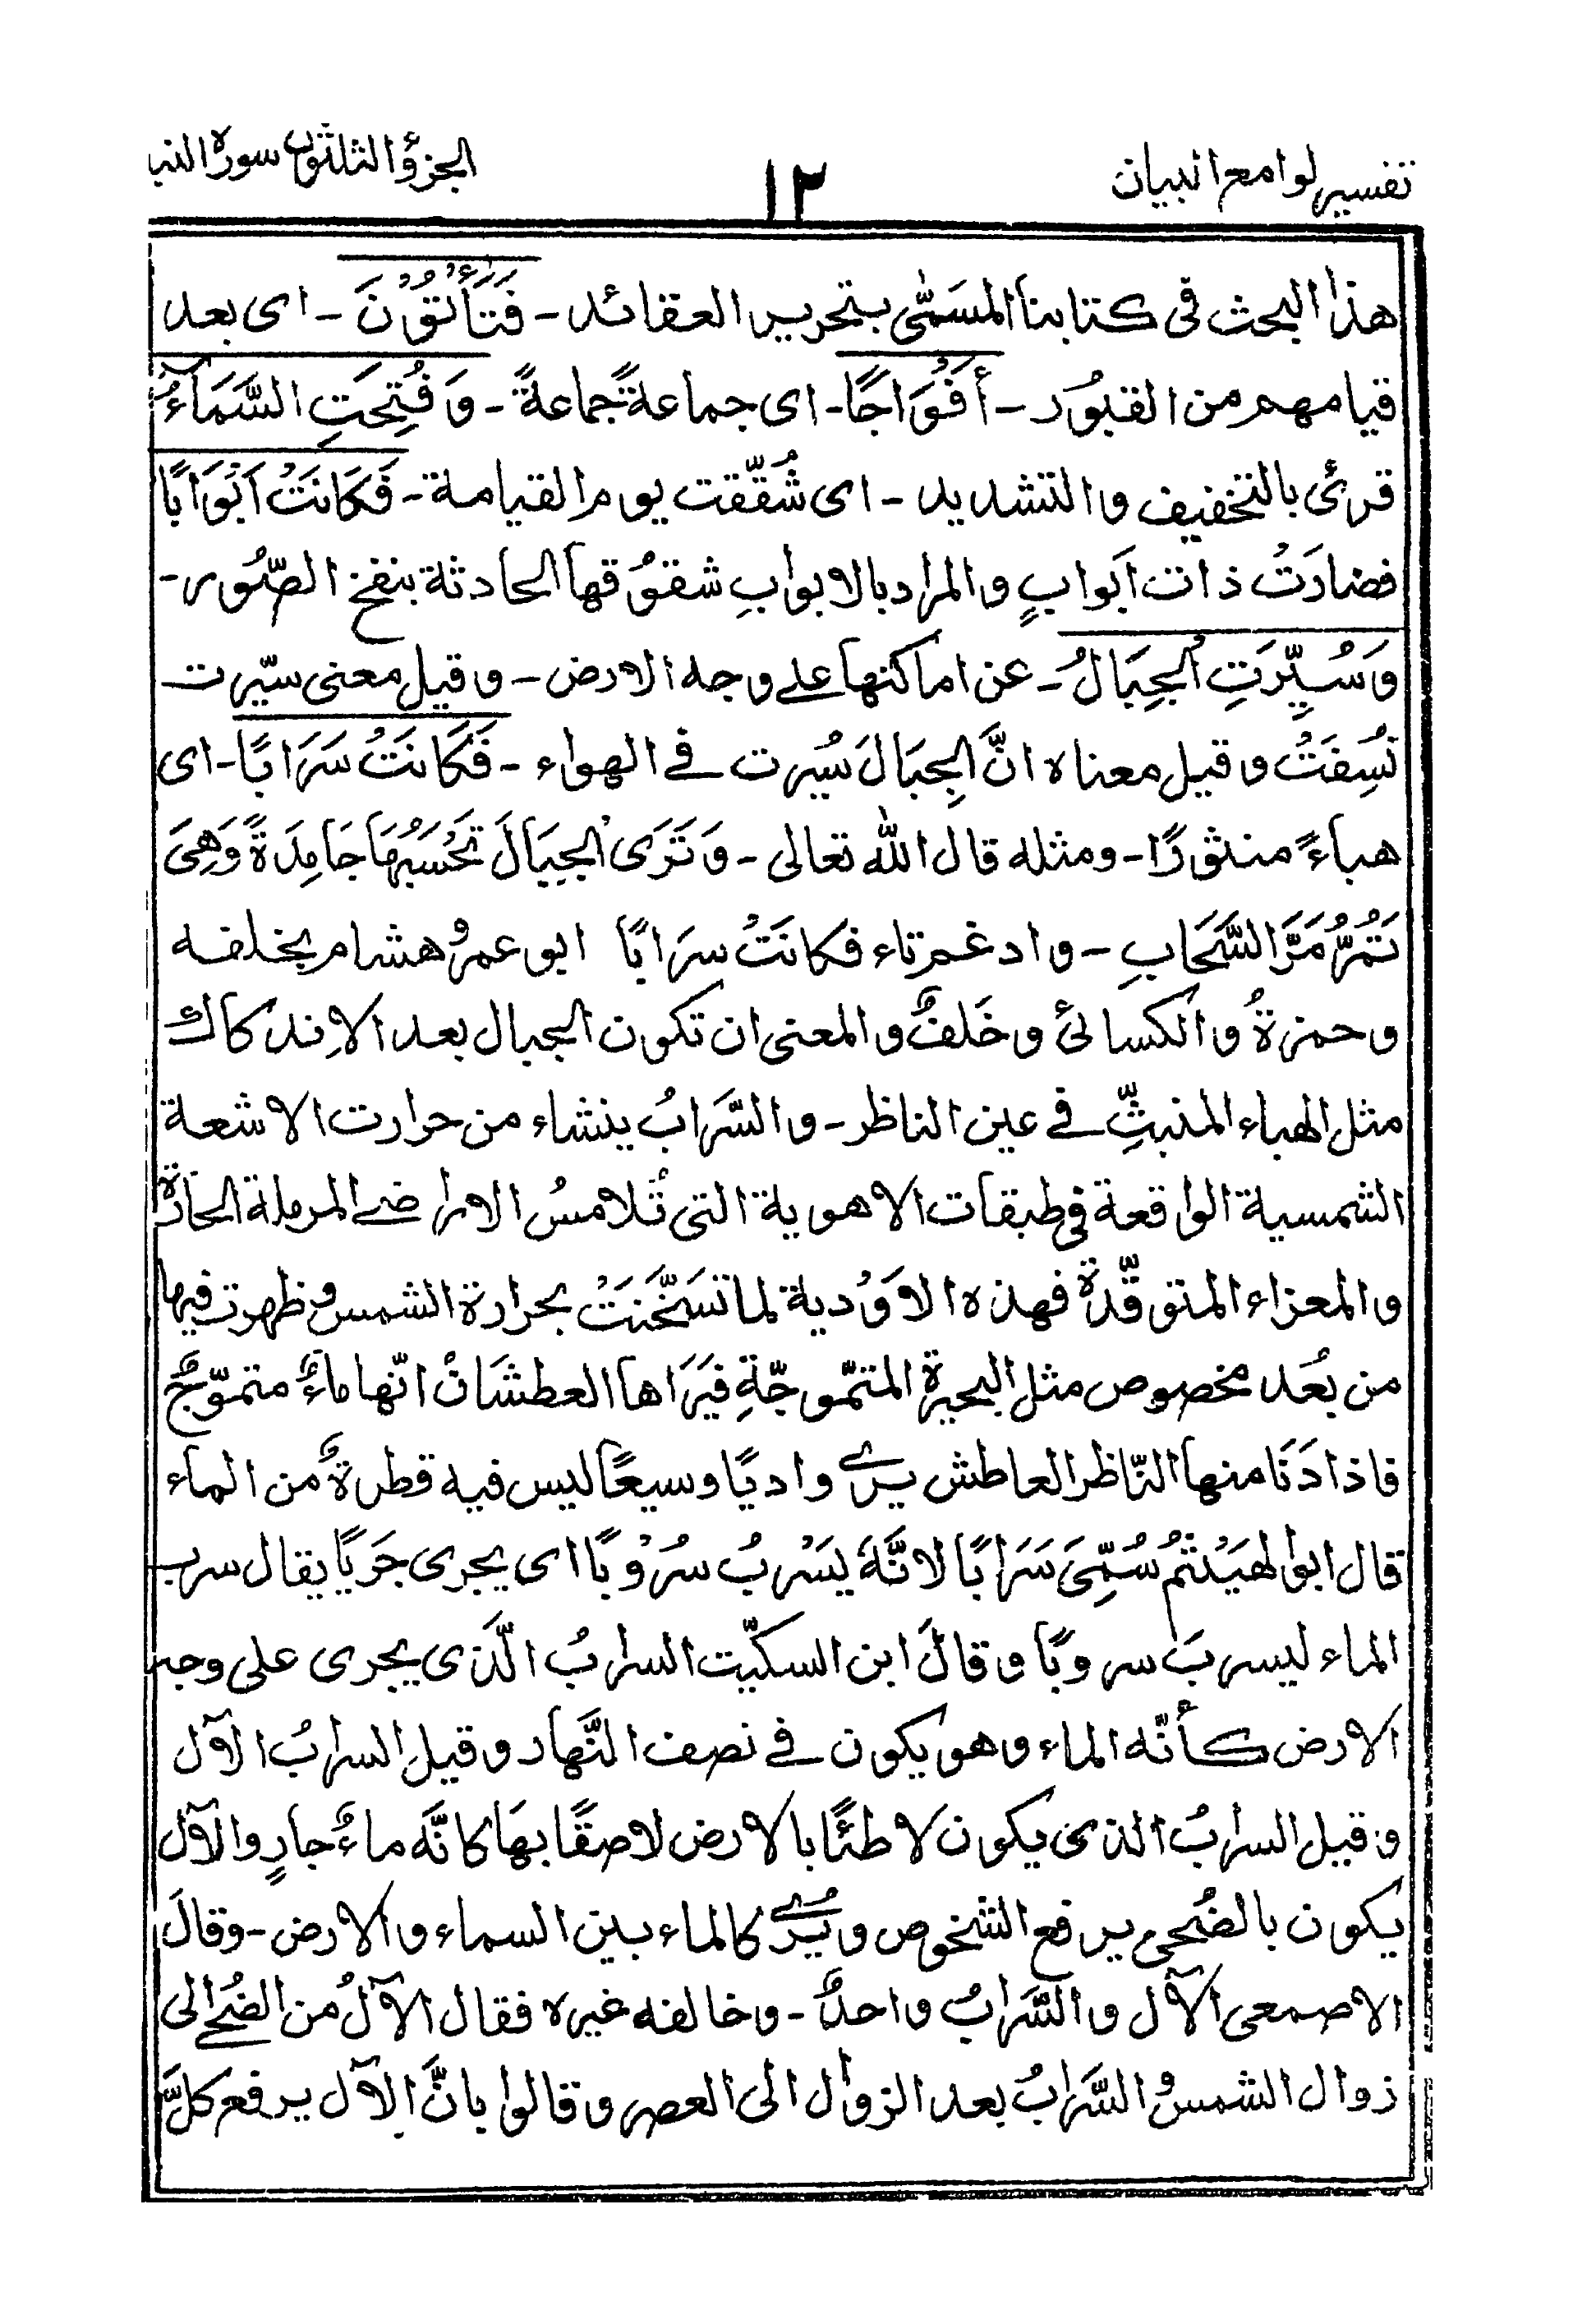 تفسير لوامع البيان ١٢ الجزؤ الثلثون سورة النبا
هذا البحث فى كتابنا المسَمّٰى بتحرير العقائد - فَتَأْتُوْنَ - اى بعد
قيامهم من القبُور - أَفْوَاجًا - اى جماعةً جماعةً - وَفُتِحَتِ السَّمَآءُ
قرئ بالتخفيف والتشديد - اى شُقّقت يوم القيامة - فَكَانَتْ اَبْوَابًا
فضارَتْ ذات اَبوابٍ والمراد بالابوابِ شقوُقها الحادثة بنفخ الصُّور -
وَسُيِّرَتِ الْجِبَالُ - عن اماكنها على وجه الارض - وقيل معنى سيّرت
نُسِفَتْ وقيل معناه انَّ الجِبَالَ سُيرت فى الهواء - فَكَانَتْ سَرَابًا - اى
هباءً منثورًا - ومثله قال الله تعالى - وَتَرَى الْجِبَالَ تَحْسَبُهَا جَامِدَةً وَهِىَ
تَمُرُّ مَرَّ السَّحَابِ - وادغم تاء فكانَتْ سرَابًا ابو عمرُو هشام بخلفه
وحمزةُ والكسائىُ وخَلفٌ والمعنى ان تكون الجبال بعد الاِندكاك
مثل الهباء المنبثِّ فى عين الناظر - والسَّرَابُ ينشاء من حرارت الاشعة
الشمسية الواقعة فى طبقات الاهوية التى تُلامسُ الاراضى المرملة الحارّة
والمعزاء المتوقّدة فهذه الاَوْدية لما تسَخَّنَتْ بحرارة الشمس وظهرت فيها
من بُعد مخصوص مثل البحيرة المتمّوجّةِ فيَرَاها العطشَانُ انّها ماءٌ متموّجٌ
فاذا دَنَا منها النّاظر العاطش يرى واديًا وسيعًا ليس فيه قطرةٌ من الماء
قال ابو الهَيْثمُ سُمِّىَ سَرَابًا لانَّهٗ يَسْربُ سرُوْبًا اى يجرى جَريًا يقال سرب
الماء ليسربَ سروبًا وقالَ ابن السكيّت السرابُ الَّذى يجرى على وجه
الارض كأنّه الماء وهو يكون فى نصف النَّهار وقيل السرابُ الآل
وقيل السرابُ الذى يكون لاطئًا بالارض لاصقًا بهَا كانَّه ماءٌ جارٍ والآل
يكون بالضُحى يرفع الشخوص ويُرى كالماء بين السماء والارض - وقالَ
الاصمعى الآل والسَّرابُ واحدٌ - وخالفه غيره فقال الآلُ من الضُحٰى الى
زوال الشمس والسَّرَابُ بعد الزوال الى العصر وقالوا بانَّ الآل يرفع كلَّ